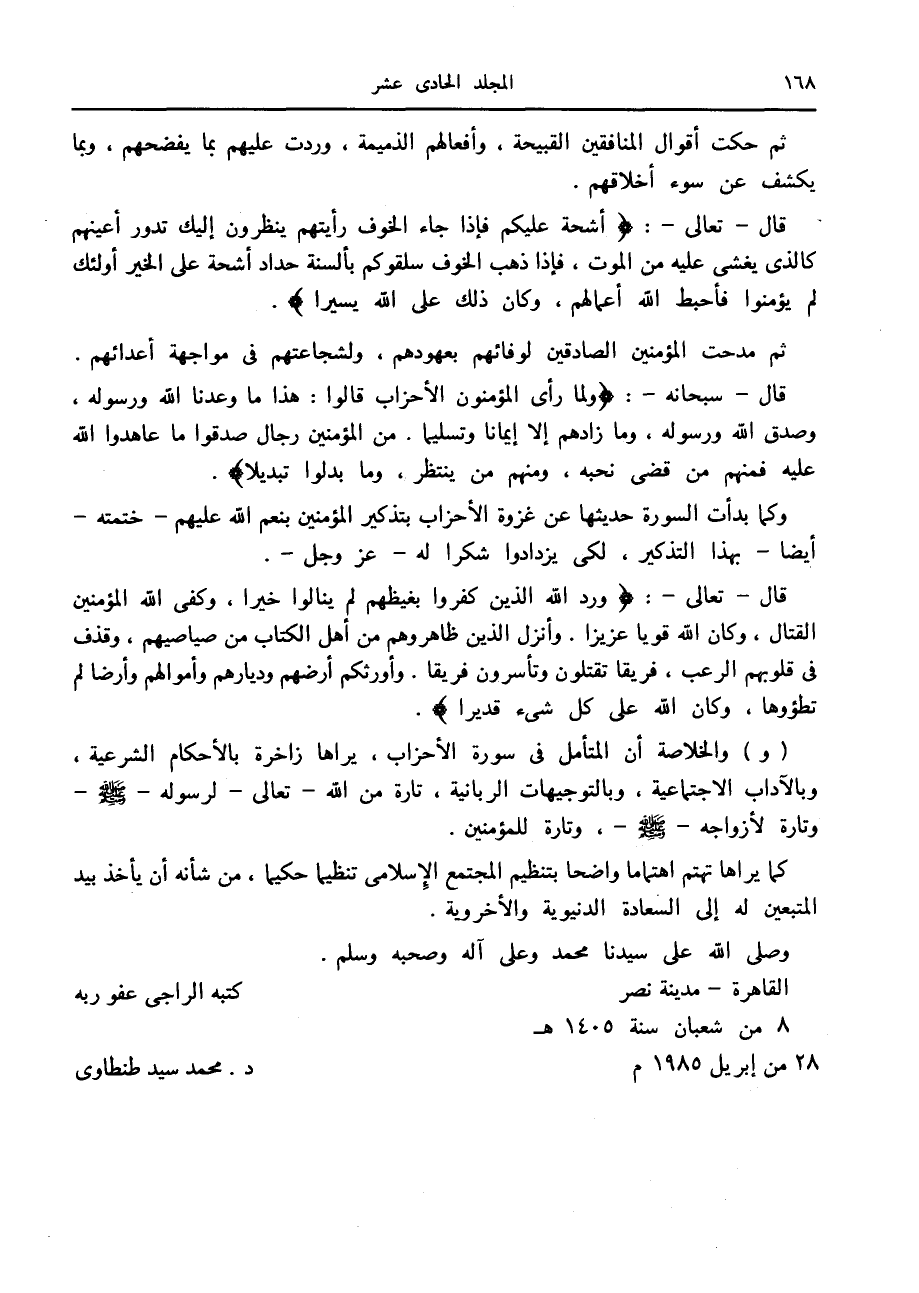 ١٦٨ المجلد الحادى عشر
ثم حكت أقوال المنافقين القبيحة ، وأفعالهم الذميمة ، وردت عليهم بما يفضحهم ، وبما
يكشف عن سوء أخلاقهم .
قال – تعالى – : ﴿ أشحة عليكم فإذا جاء الخوف رأيتهم ينظرون إليك تدور أعينهم
كالذى يغشى عليه من الموت ، فإذا ذهب الخوف سلقوكم بألسنة حداد أشحة على الخير أولئك
لم يؤمنوا فأحبط الله أعمالهم ، وكان ذلك على الله يسيرا ﴾ .
ثم مدحت المؤمنين الصادقين لوفائهم بعهودهم ، ولشجاعتهم فى مواجهة أعدائهم .
قال – سبحانه – : ﴿ولما رأى المؤمنون الأحزاب قالوا : هذا ما وعدنا الله ورسوله ،
وصدق الله ورسوله ، وما زادهم إلا إيمانا وتسليما . من المؤمنين رجال صدقوا ما عاهدوا الله
عليه فمنهم من قضى نحبه ، ومنهم من ينتظر ، وما بدلوا تبديلا﴾ .
وكما بدأت السورة حديثها عن غزوة الأحزاب بتذكير المؤمنين بنعم الله عليهم – ختمته –
أيضا – بهذا التذكير ، لكى يزدادوا شكرا له – عز وجل – .
قال – تعالى – : ﴿ ورد الله الذين كفروا بغيظهم لم ينالوا خيرا ، وكفى الله المؤمنين
القتال ، وكان الله قويا عزيزا . وأنزل الذين ظاهروهم من أهل الكتاب من صياصيهم ، وقذف
فى قلوبهم الرعب ، فريقا تقتلون وتأسرون فريقا . وأورثكم أرضهم وديارهم وأموالهم وأرضا لم
تطؤوها ، وكان الله على كل شىء قديرا ﴾ .
( و ) والخلاصة أن المتأمل فى سورة الأحزاب ، يراها زاخرة بالأحكام الشرعية ،
وبالآداب الاجتماعية ، وبالتوجيهات الربانية ، تارة من الله – تعالى – لرسوله – ﷺ –
وتارة لأزواجه – ﷺ – ، وتارة للمؤمنين .
كما يراها تهتم اهتماما واضحا بتنظيم المجتمع الإسلامى تنظيما حكيما ، من شأنه أن يأخذ بيد
المتبعين له إلى السعادة الدنيوية والأخروية .
وصلى الله على سيدنا محمد وعلى آله وصحبه وسلم .
القاهرة – مدينة نصر كتبه الراجى عفو ربه
٨ من شعبان سنة ١٤٠٥ هـ
٢٨ من إبريل ١٩٨٥ م د . محمد سيد طنطاوى